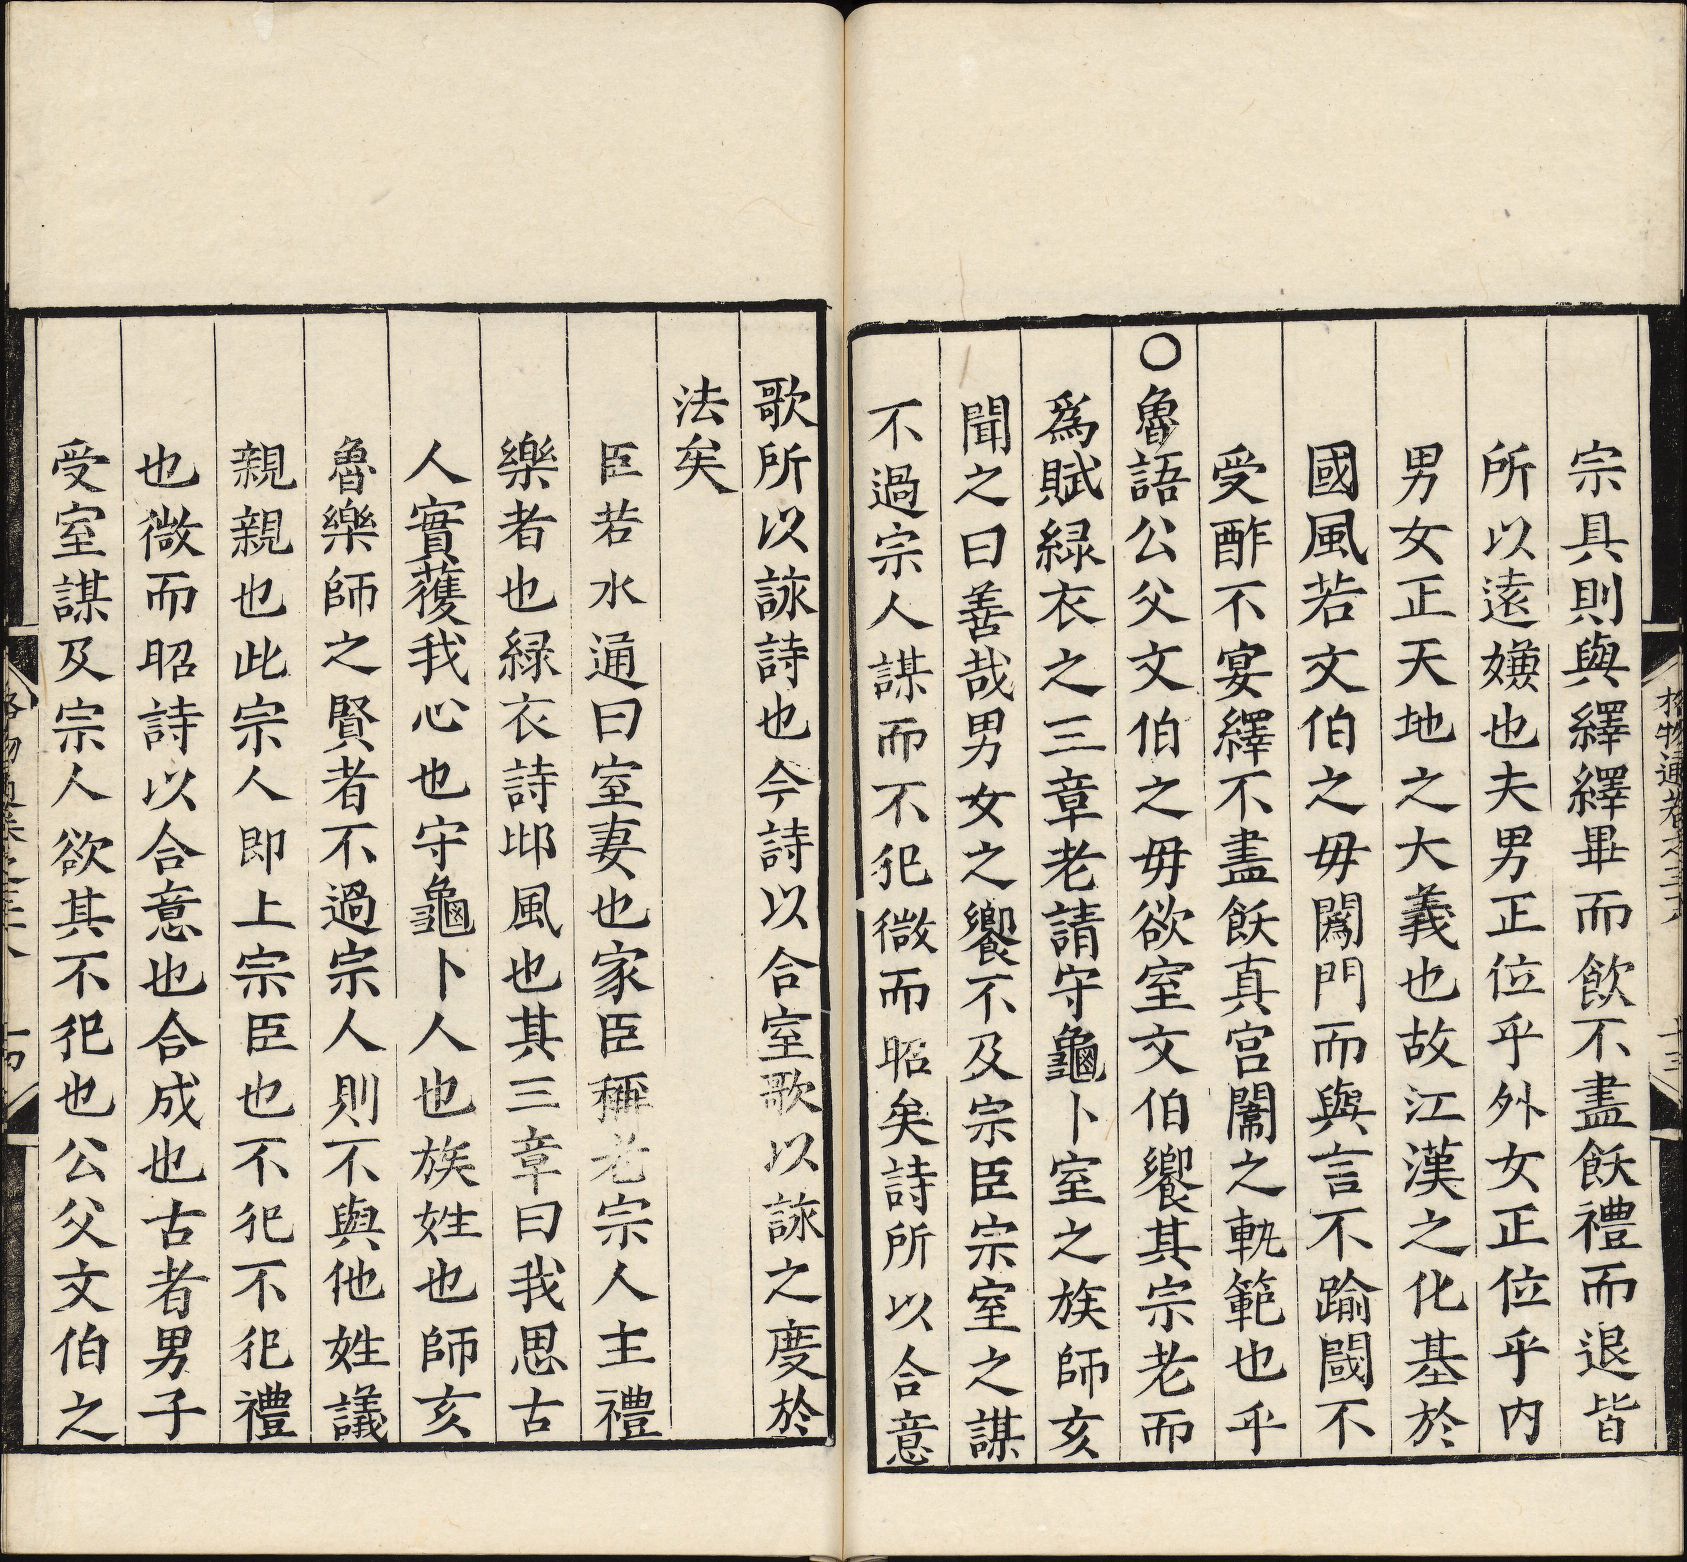 宗具則與繹繹畢而飲不盡飫禮而退皆
所以遠嫌也夫男正位乎外女正位乎内
男女正天地之大義也故江漢之化基於
國風若文伯之毋闖門而與言不踰閾不
受酢不宴繹不盡飫真宫闈之軌範也乎
○魯語公父文伯之毋欲室文伯饗其宗老而
爲賦緑衣之三章老請守龜卜室之族師亥
聞之曰善哉男女之饗不及宗臣宗室之謀
不過宗人謀而不犯微而昭矣詩所以合意
歌所以詠詩也今詩以合室歌以詠之度於
法矣
臣若水通曰室妻也家臣稱老宗人主禮
樂者也緑衣詩邶風也其三章曰我思古
人實獲我心也守龜卜人也族姓也師亥
魯樂師之賢者不過宗人則不與他姓議
親親也此宗人即上宗臣也不犯不犯禮
也微而昭詩以合意也合成也古者男子
受室謀及宗人欲其不犯也公父文伯之
格物通卷之三十八
十三
十四